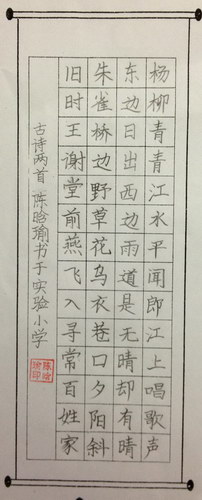 杨柳青青江水平闻郎江上唱歌声
东边日出西边雨道是无晴却有晴
朱雀桥边野草花乌衣巷口夕阳斜
旧时王谢堂前燕飞入寻常百姓家
古诗两首 陈晗瑜书于实验小学